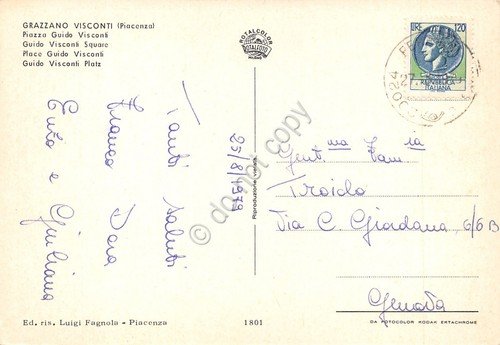 GRAZZANO VISCONTI (Piacenza)
Piazza Guido Visconti
Guido Visconti Square
Place Guido Visconti
Guido Visconti Platz
ROTALCOLOR
ROTALFOTO
MILANO
LIRE 120
REPUBBLICA
ITALIANA
25/8/1979
Tanti saluti
Franco Dora
Enzo e Giuliana
Riproduzione vietata
Gent.ma Fam.ia
Troielo
Via C. Giordana 6/6 B
Genova
Ed. ris. Luigi Fagnola - Piacenza
1801
DA FOTOCOLOR KODAK EKTACHROME
do not copy